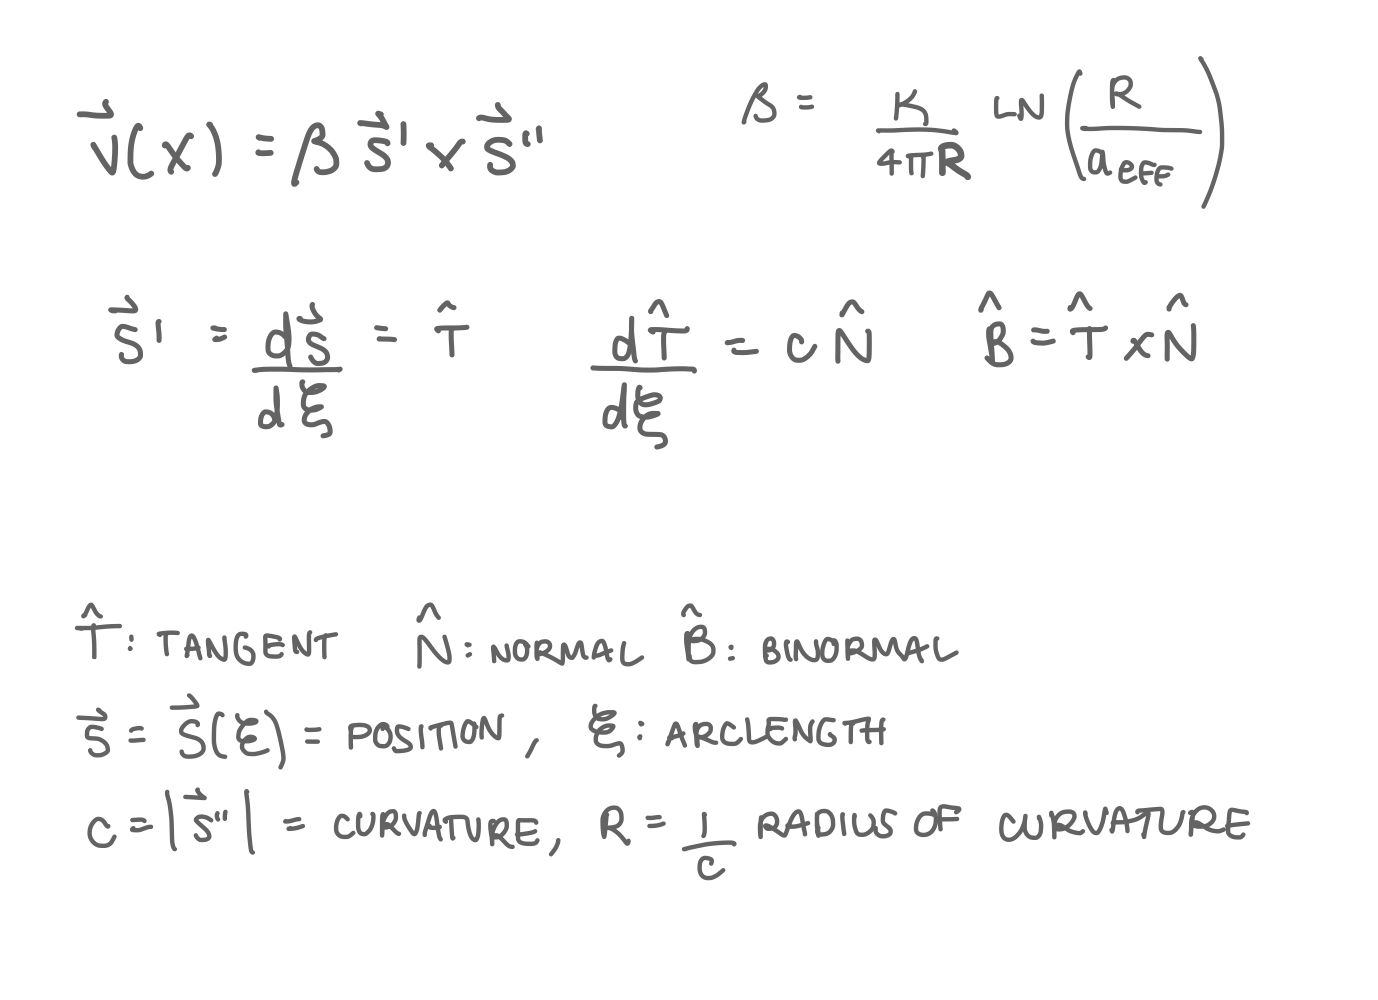 v⃗(x) = β s⃗' × s⃗'' β = K/4πR LN (R/a_EFF)
s⃗' = ds⃗/dξ = T̂ dT̂/dξ = c N̂ B̂ = T̂ × N̂
T̂: TANGENT N̂: NORMAL B̂: BINORMAL
s⃗ = s⃗(ξ) = POSITION, ξ: ARCLENGTH
c = |s⃗''| = CURVATURE, R = 1/c RADIUS OF CURVATURE